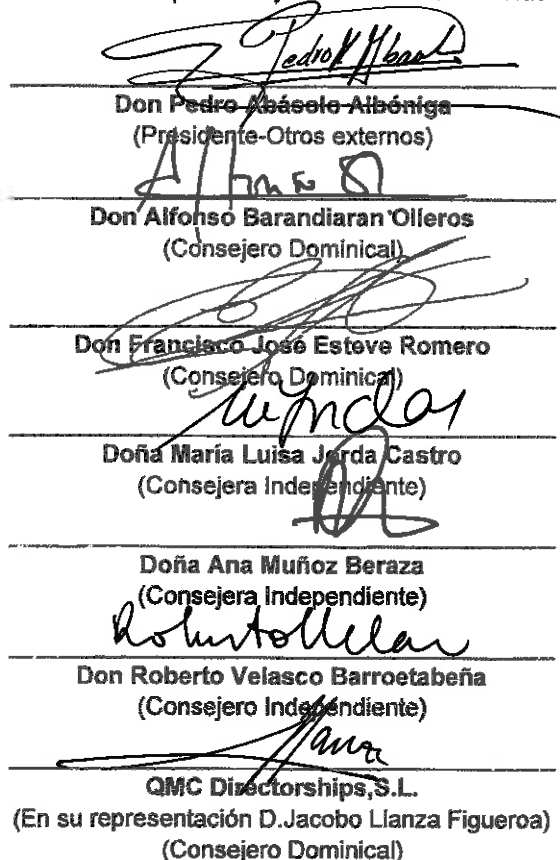 Don Pedro Abásolo Albóniga
(Presidente-Otros externos)
Don Alfonso Barandiaran Olleros
(Consejero Dominical)
Don Francisco José Esteve Romero
(Consejero Dominical)
Doña María Luisa Jorda Castro
(Consejera Independiente)
Doña Ana Muñoz Beraza
(Consejera Independiente)
Don Roberto Velasco Barroetabeña
(Consejero Independiente)
QMC Directorships,S.L.
(En su representación D.Jacobo Llanza Figueroa)
(Consejero Dominical)